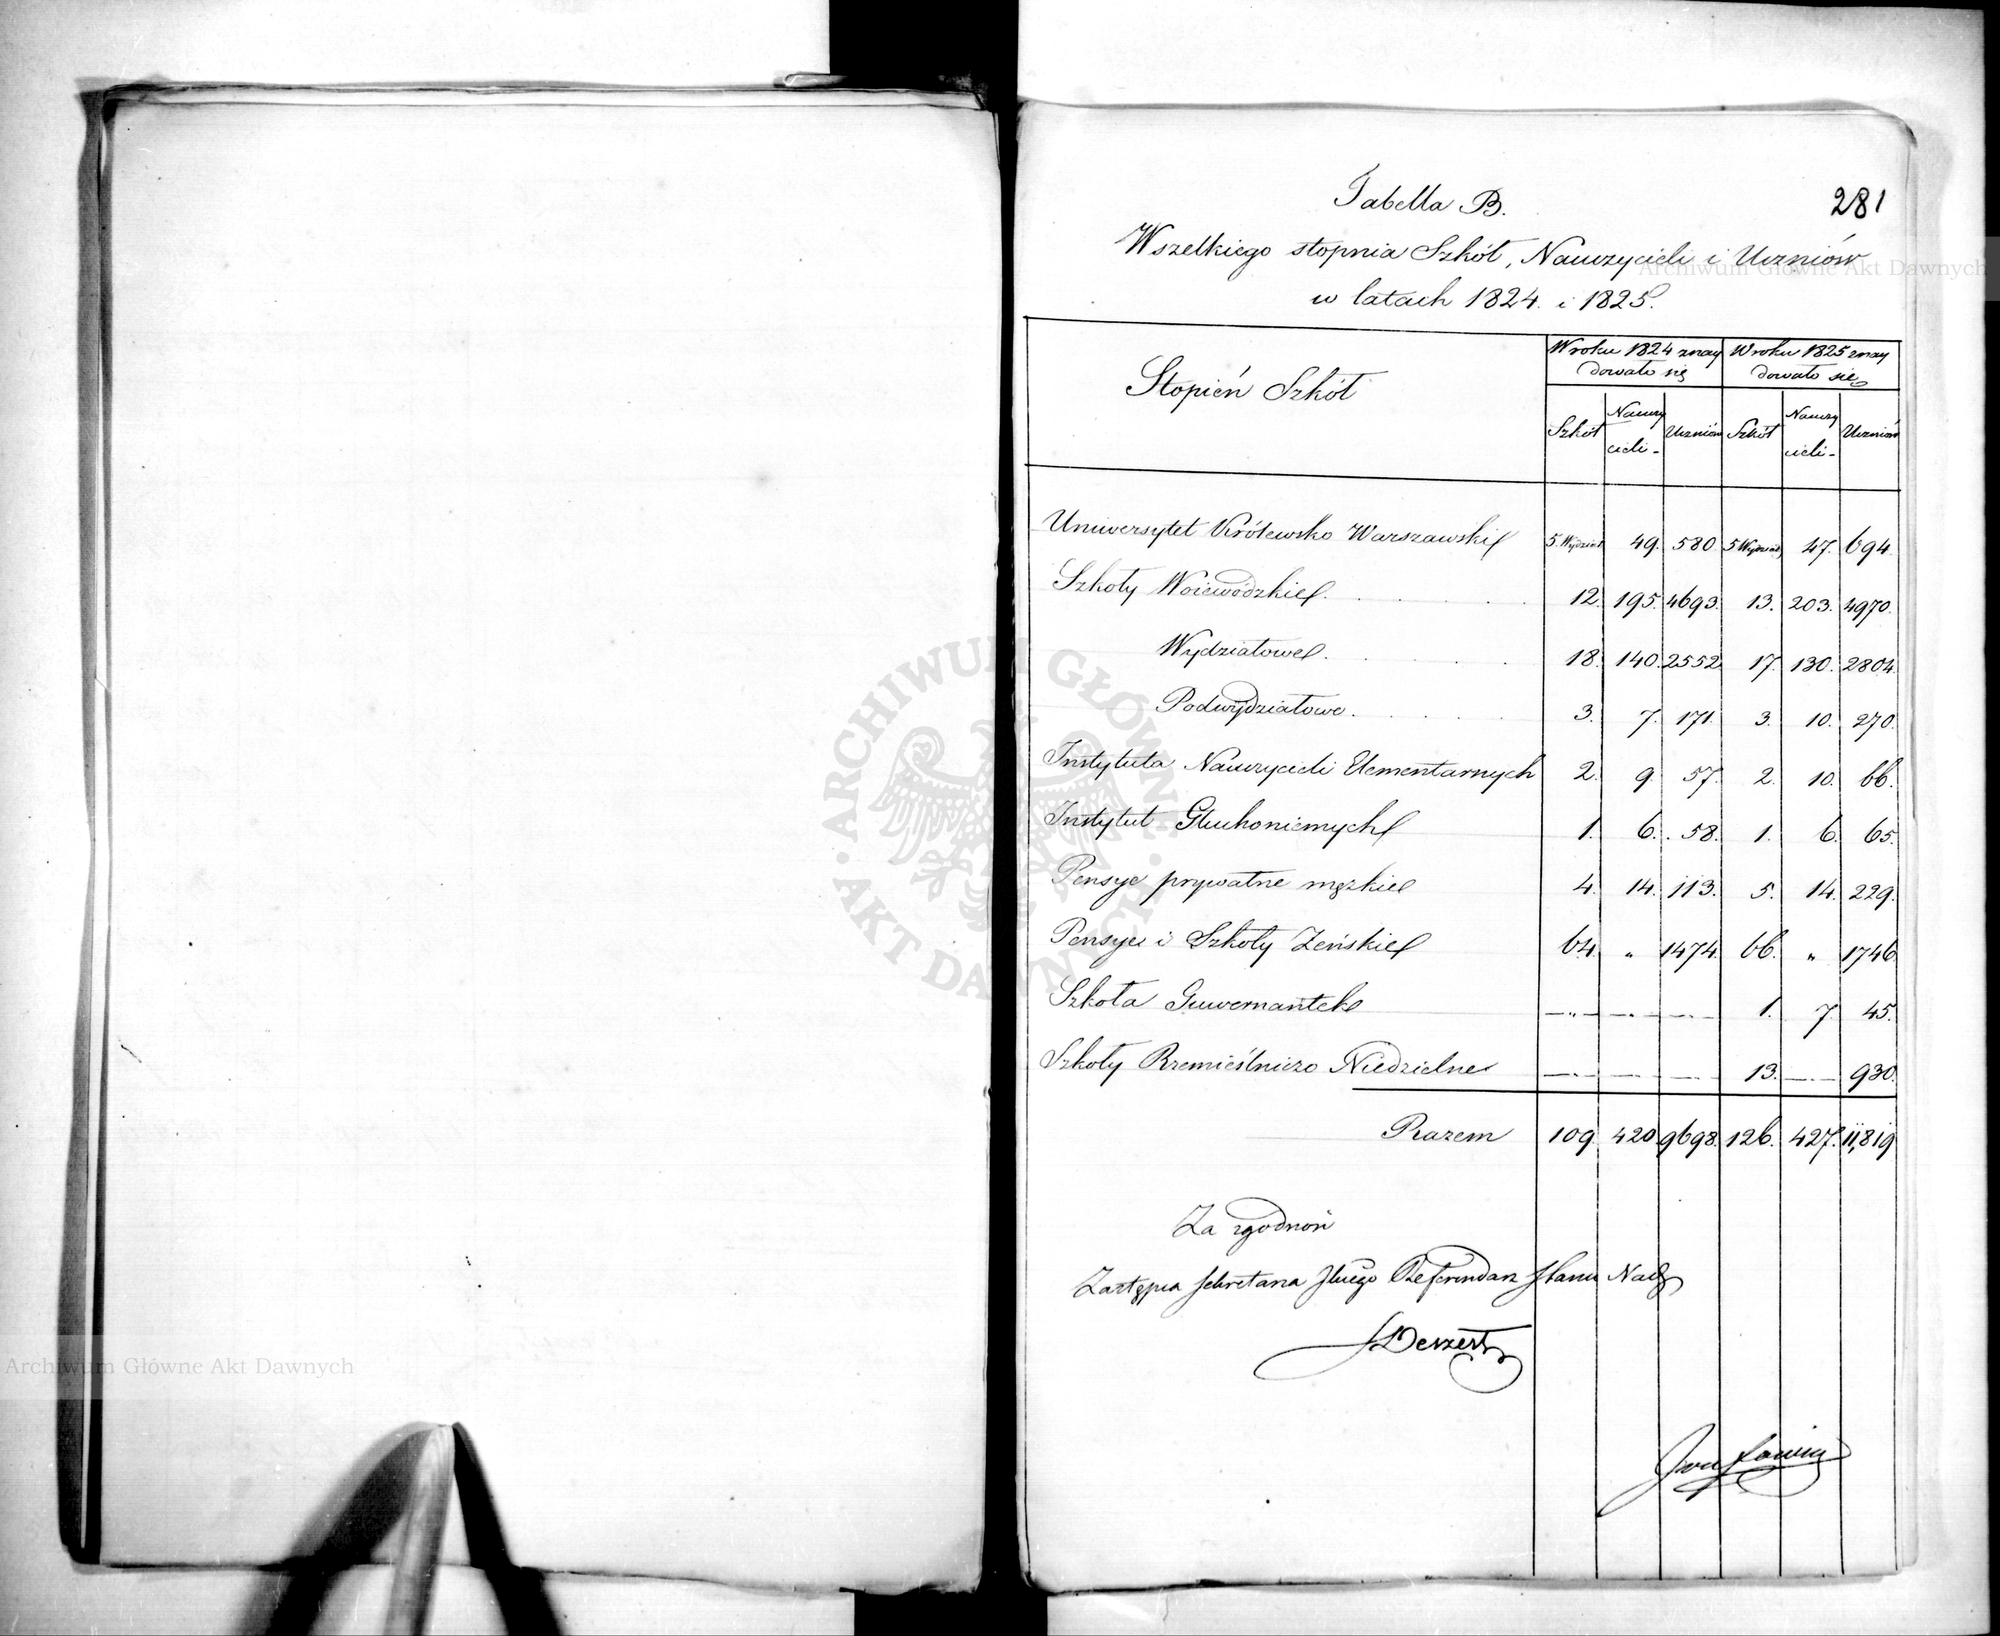 281
Tabella B.
Wszelkiego stopnia Szkół, Nauczycieli i Uczniów
w latach 1824. i 1825.
Stopień Szkół
W roku 1824 znay W roku 1825 znay
dowało się dowało się
Szkół Nauczy Uczniów Szkół Nauczy Uczniów
cieli - cieli -
Uniwersytet Królewsko Warszawski 5. Wydział 49. 580 5 Wydział 47. 694.
Szkoły Woiewódzkie . . . . 12. 195. 4693. 13. 203. 4970.
Wydziałowe . . . . 18. 140. 2552 17. 130. 2804.
Podwydziałowe . . . . 3. 7. 171. 3. 10. 270.
Instytuta Nauczycieli Elementarnych 2. 9 57. 2. 10. 66.
Instytut Głuchoniemych 1. 6. 58. 1. 6. 65.
Pensye prywatne męzkie 4. 14. 113. 5. 14. 229.
Pensye i Szkoły Żeńskie 64. " 1474. 66. " 1746.
Szkoła Guwernantek — " — — " — — " — 1. 7. 45.
Szkoły Rzemieślniczo Niedzielne — " — — — 13. — 930.
Razem 109. 420. 9698. 126. 427. 11,819
Za zgodność
Zastępca Sekretarza Jlnego Referendarz Stanu Nadz
Archiwum Główne Akt Dawnych
Archiwum Główne Akt Dawnych
ARCHIWUM GŁÓWNE · AKT DAWNYCH ·